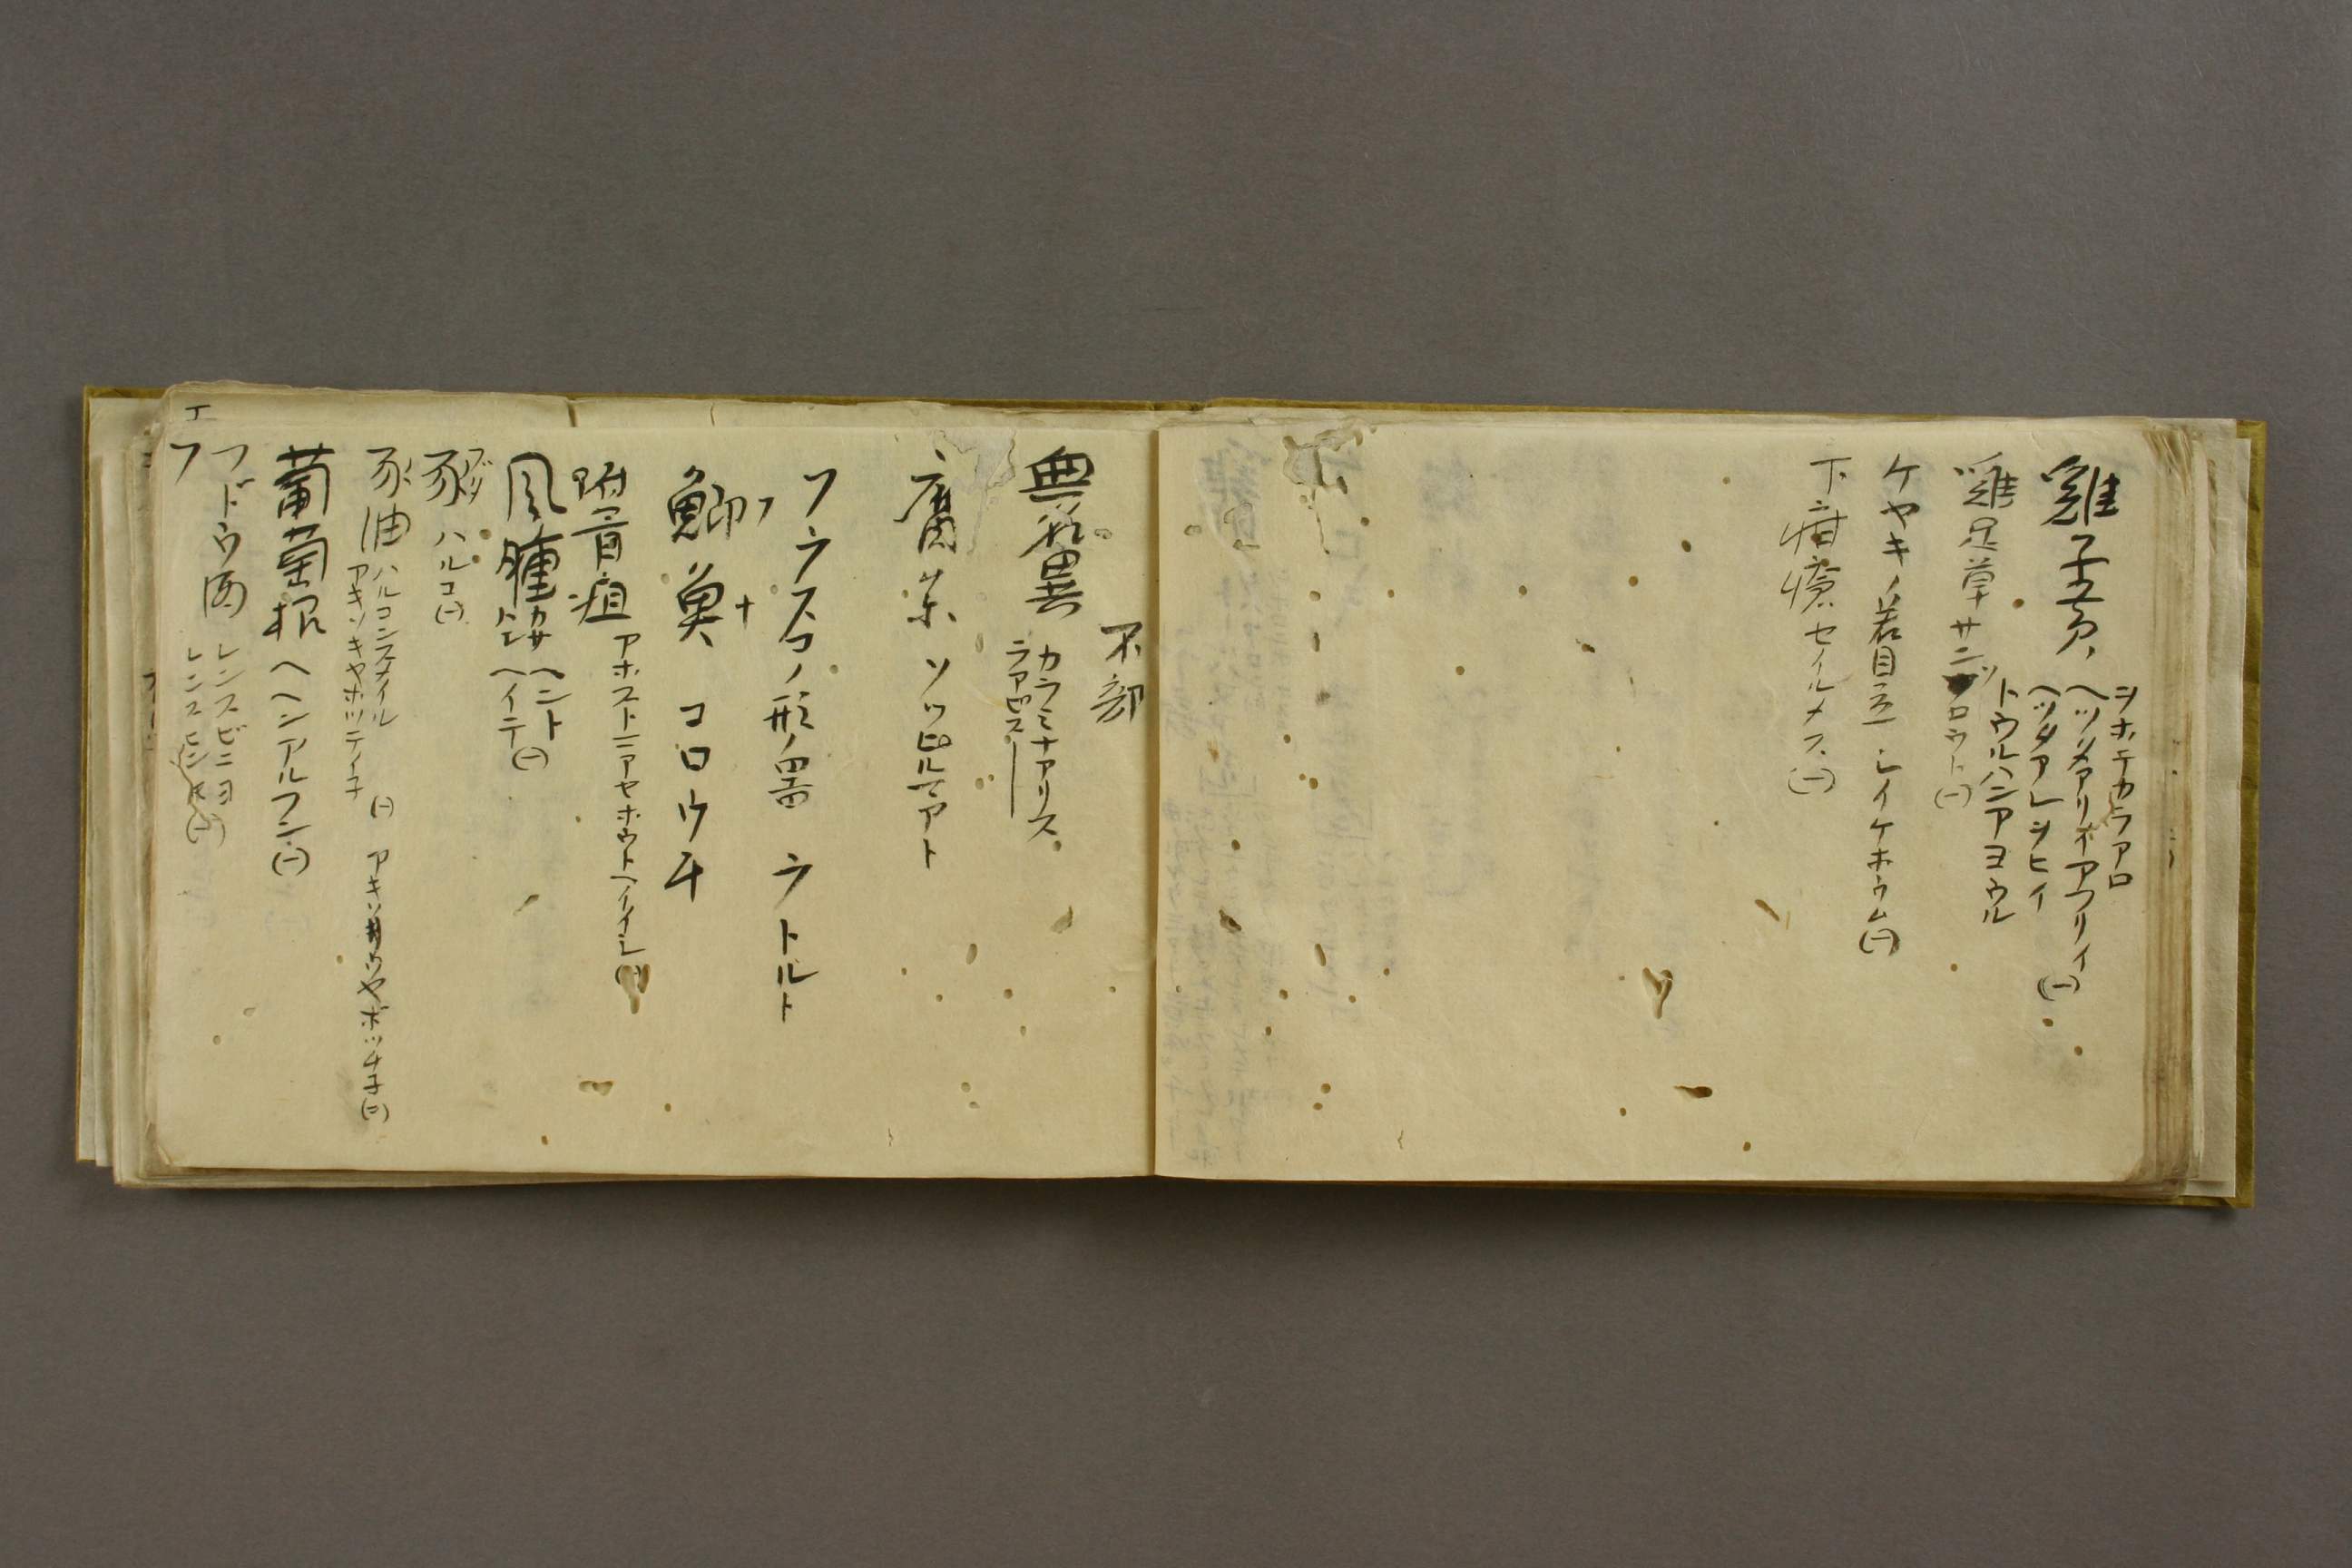 雞子壳
ヲホテカラアロ
ヘツリメアリオアフリイ(一)
ヘツダアレヲヒイ
トウルハニアヨウル
雞足草 サニツ
ロウト(一)
ケヤキノ若目立 レイケホウム(一)
下疳瘡 セイルメス(一)
不部
無名異 カラミナアリス
ラアピス
腐薬 ソッピルマアト
フラスコノ形ノ器 ラトルト
フナ
鯽魚 コロウチ
附骨疽 アホストニアセホウトヘイイシ
風腫 カサ ヘント(一)
ヘイテ
豚 ハルコ(一)
豕油 ハルコンスメイル(一)
アキソキヤホツテイコ
葡萄根 ヘヘンアルフン(一)
フドウ酒 レンスビニヨ(一)
レンスヒン
エ
フ